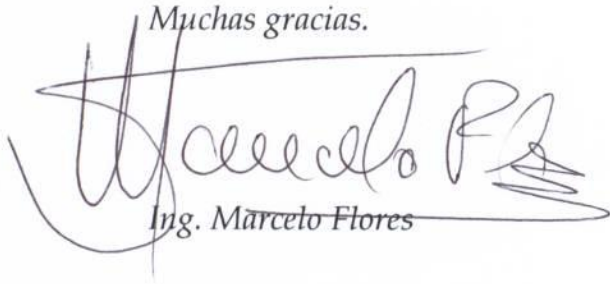 Muchas gracias.
Marcelo F
Ing. Marcelo Flores